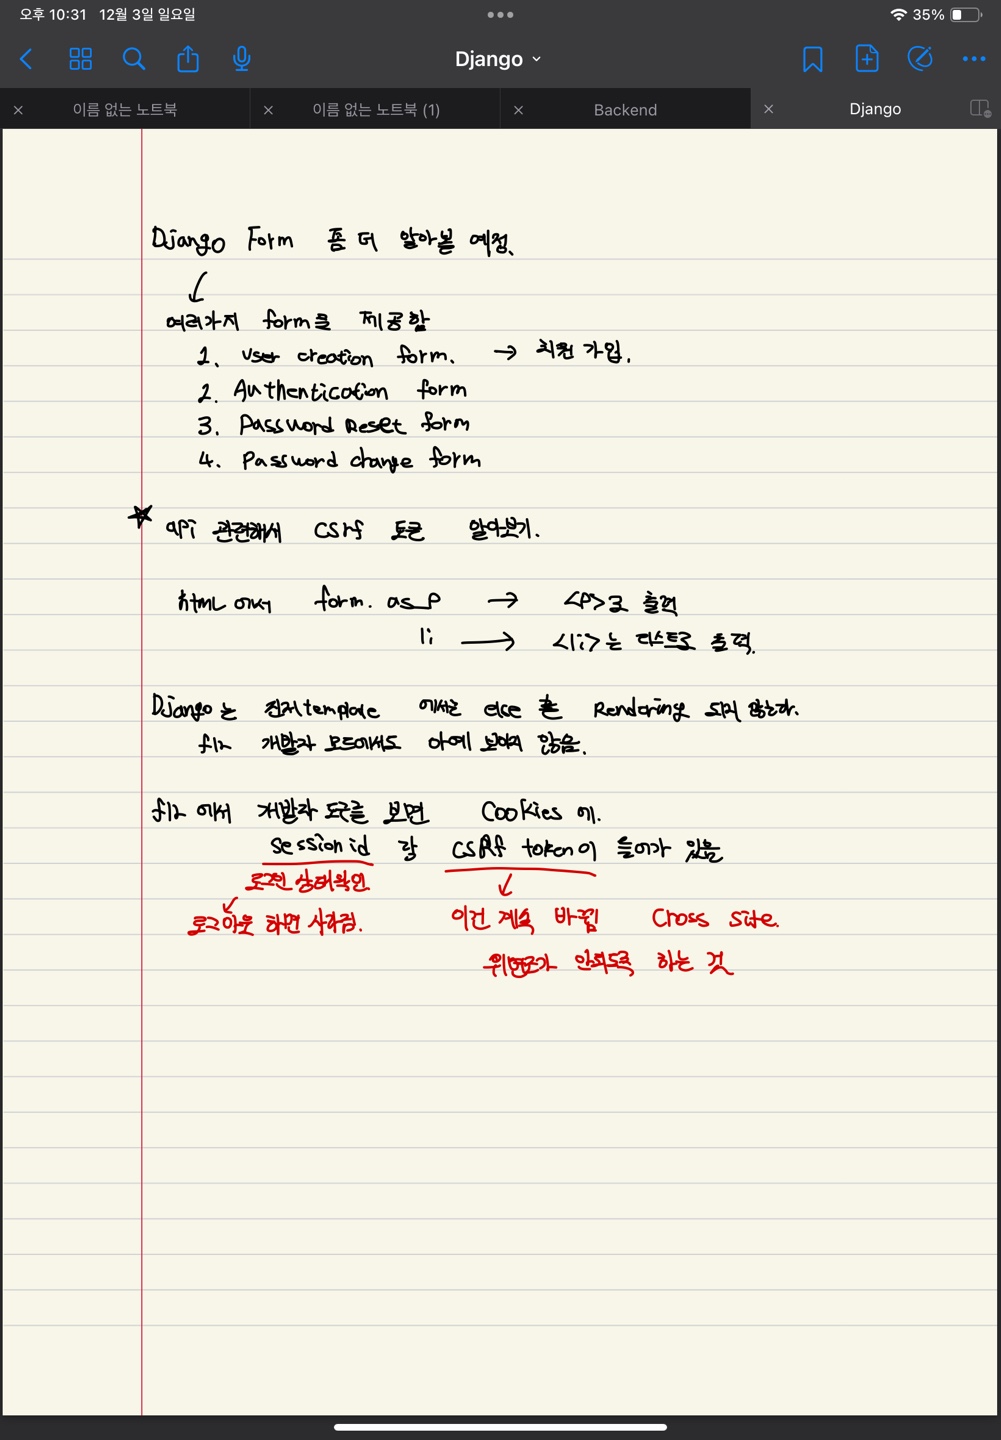 오후 10:31 12월 3일 일요일
35%
Django
이름 없는 노트북
이름 없는 노트북 (1)
Backend
Django
Django Form 좀 더 알아볼 예정.
여러가지 form을 제공함
1. user creation form. → 회원 가입.
2. Authentication form
3. Password Reset form
4. Password change form
★ api 관련해서 csrf 토큰 알아보기.
html 에서 form. as_p → <P>로 출력
li → <li>는 리스트로 출력.
Django는 template 에서는 else Rendering 되지 않는다.
f12 개발자 모드에서도 아예 보이지 않음.
f12 에서 개발자 도구를 보면 Cookies 에.
session id 랑 CSRF token이 들어가 있음
로그인 상태확인
로그아웃 하면 사라짐. 이건 계속 바뀜 Cross site.
위변조가 안되도록 하는 것